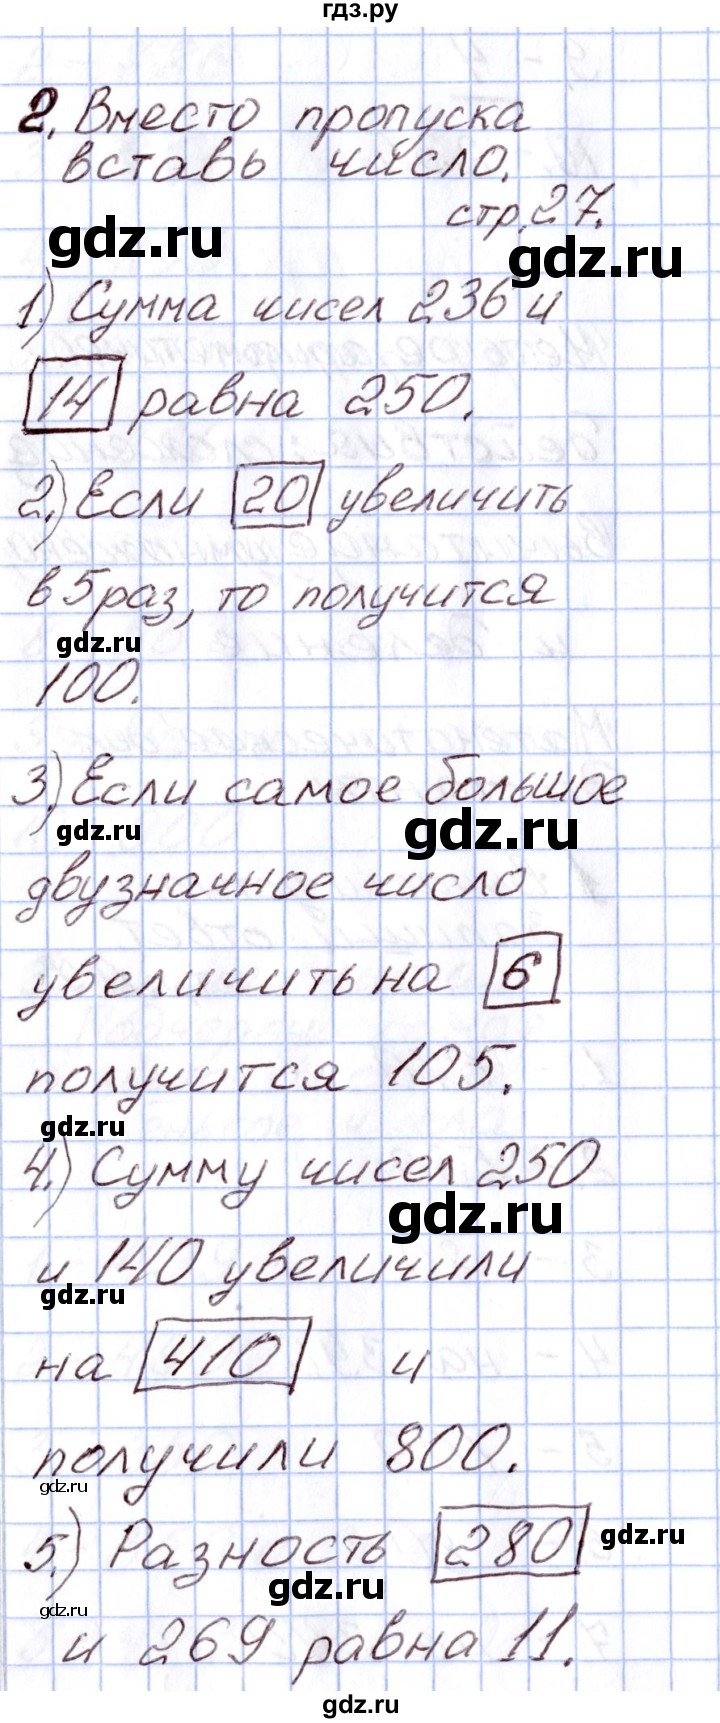 гдз.ру
2. Вместо пропуска
вставь число.
стр. 27.
gdz.ru
gdz.ru
1.) Сумма чисел 236 и
14 равна 250.
2.) Если 20 увеличить
в 5 раз, то получится
gdz.ru
100.
3.) Если самое большое
gdz.ru
gdz.ru
двузначное число
увеличить на 6
получится 105.
gdz.ru
4.) Сумму чисел 250
gdz.ru
и 140 увеличили
gdz.ru
на 410 и
получили 800.
gdz.ru
5.) Разность 280
gdz.ru
gdz.ru
gdz.ru
и 269 равна 11.
gdz.ru